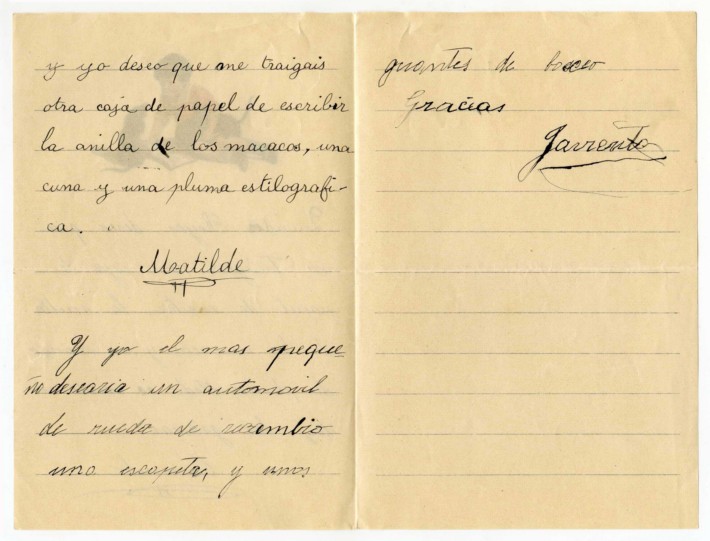 y yo deseo que me traigais
otra caja de papel de escribir
la anilla de los macacos, una
cuna y una pluma estilografi-
ca.
Matilde
Y yo el mas peque-
ño desearia un automovil
de rueda de recambio
una escopeta, y unos
guantes de boxeo
Gracias